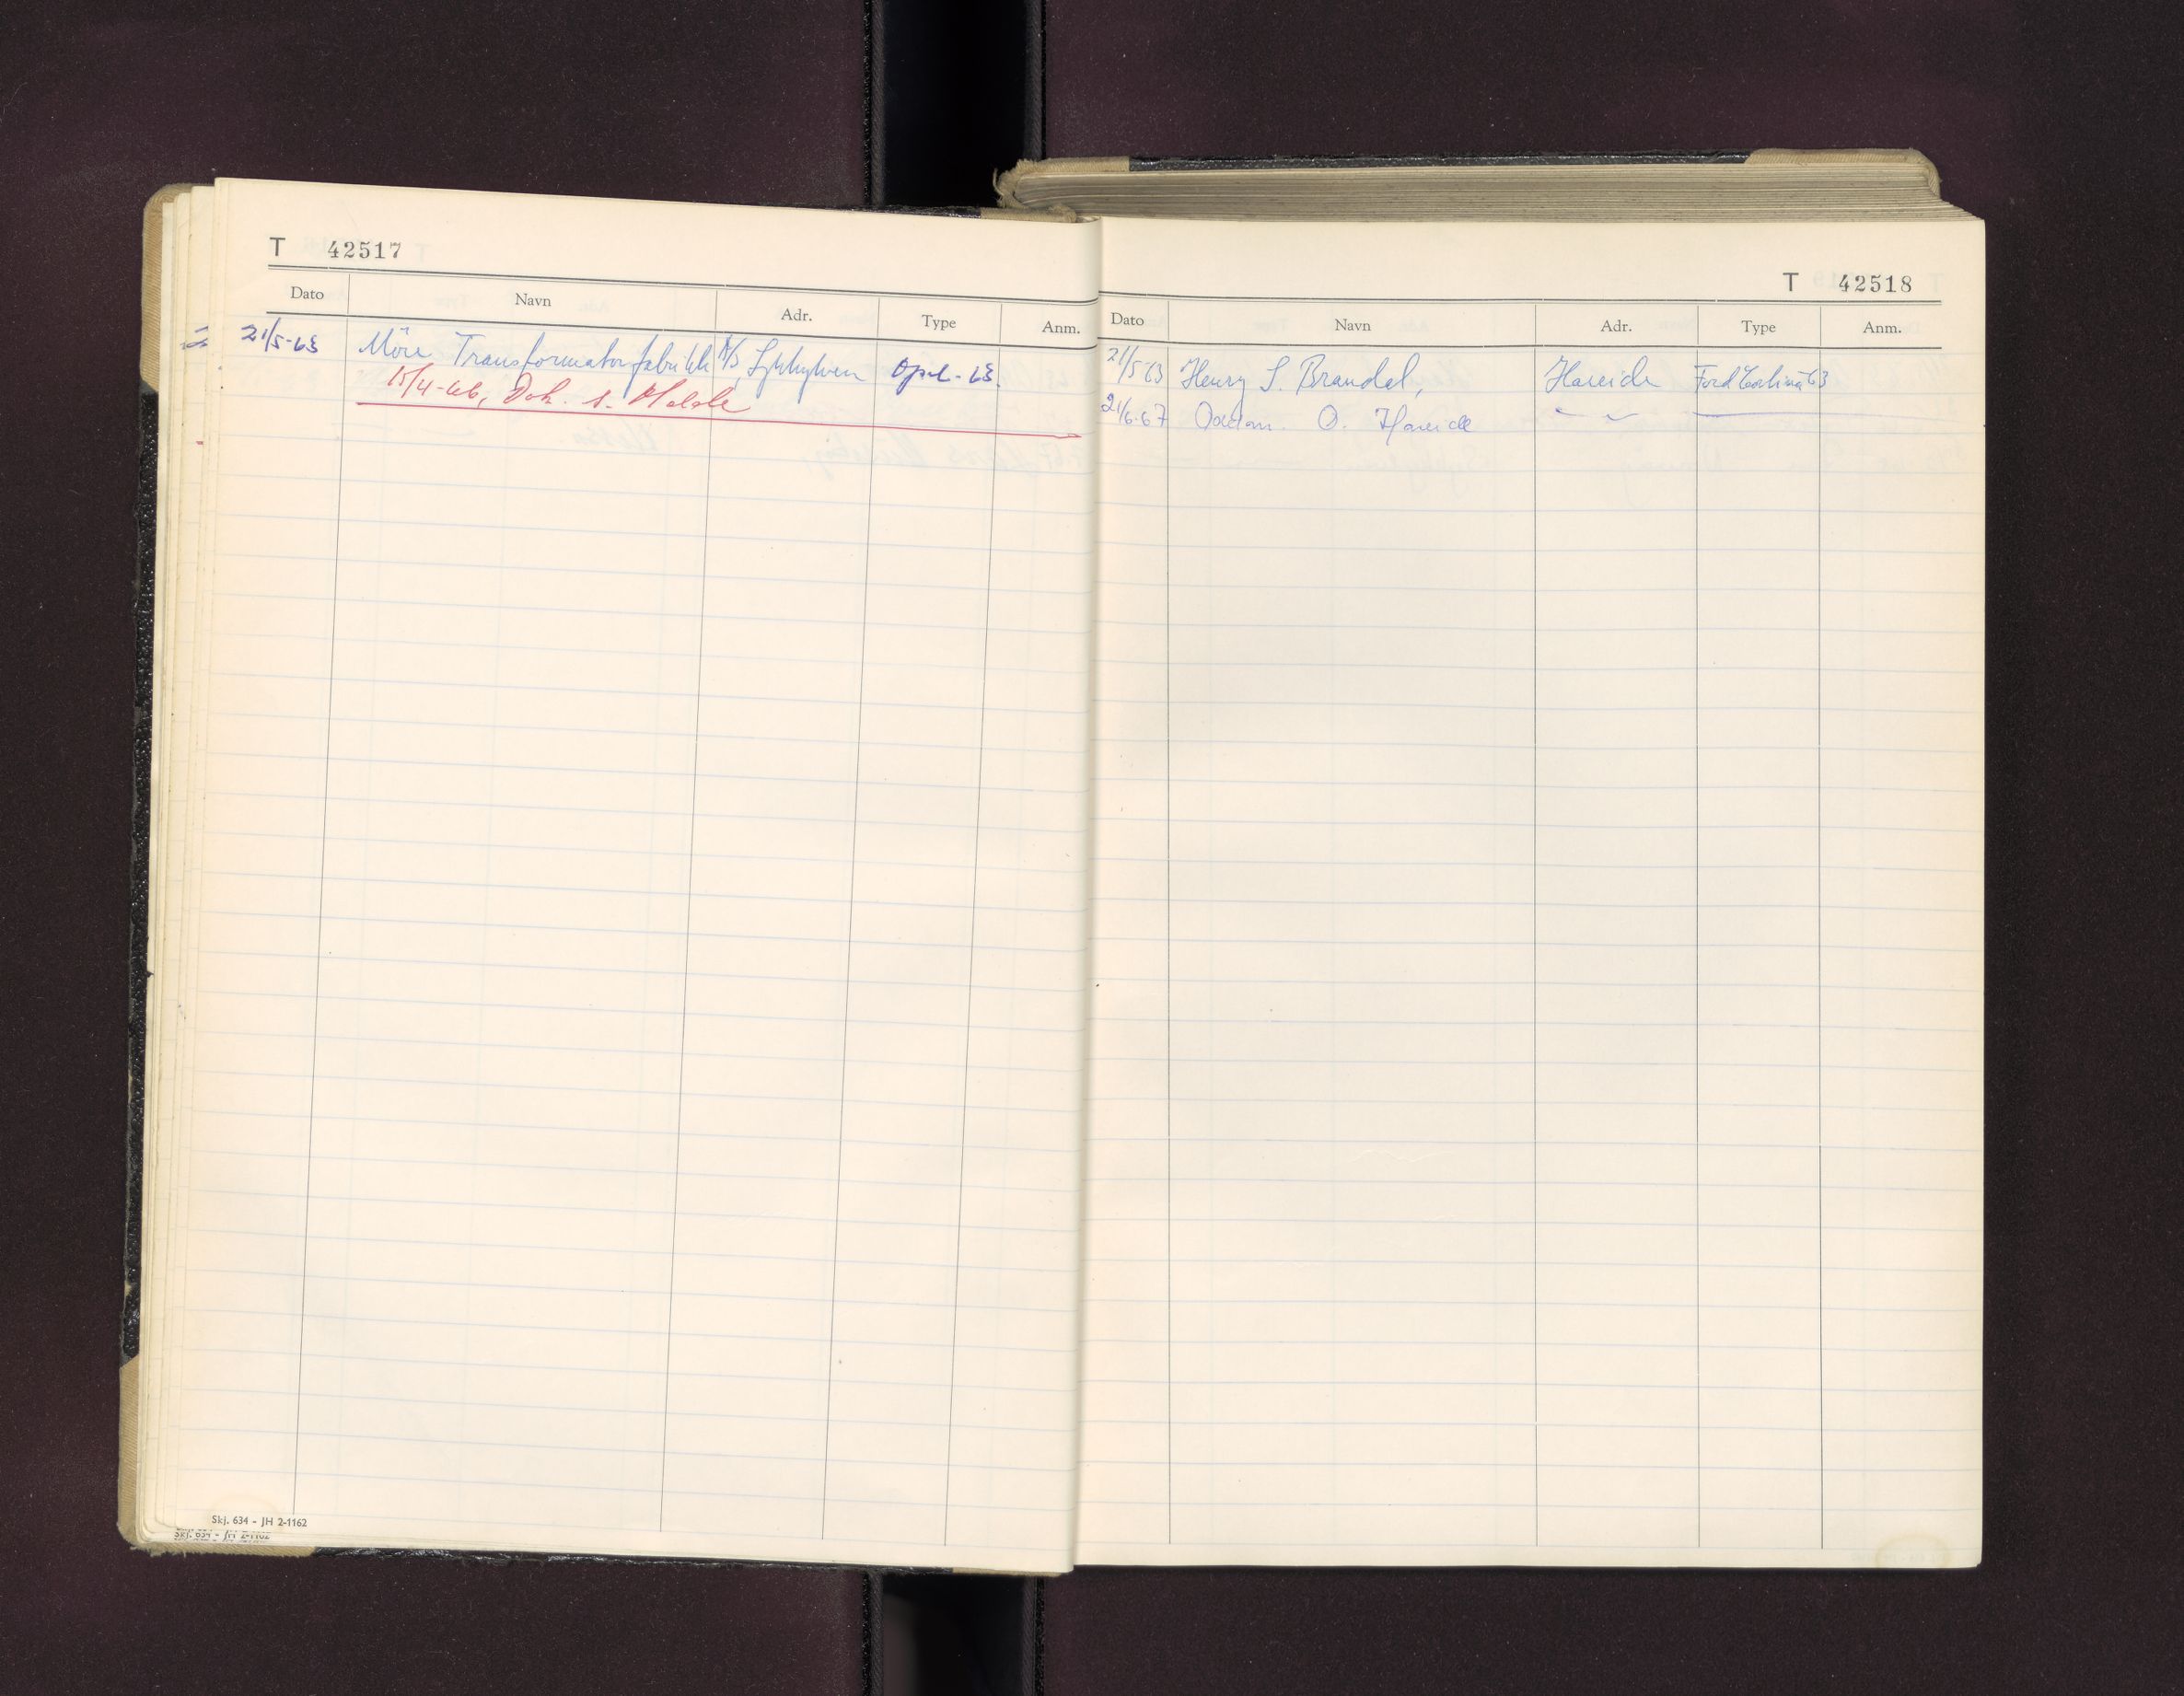 T 42517
Dato Navn Adr. Type Anm.
21/5-63 Möre Transformatorfabrikk A/S, Sykkylven Opel-63.
15/4-66, Dok. s. Molde
Skj. 634 - JH 2-1162
Skj. 634 - JH 2-1162
T 42518
Dato Navn Adr. Type Anm.
21/5-63 Henry S. Brandal, Hareide Ford Cortina 63
21/6-67 O. Hareide